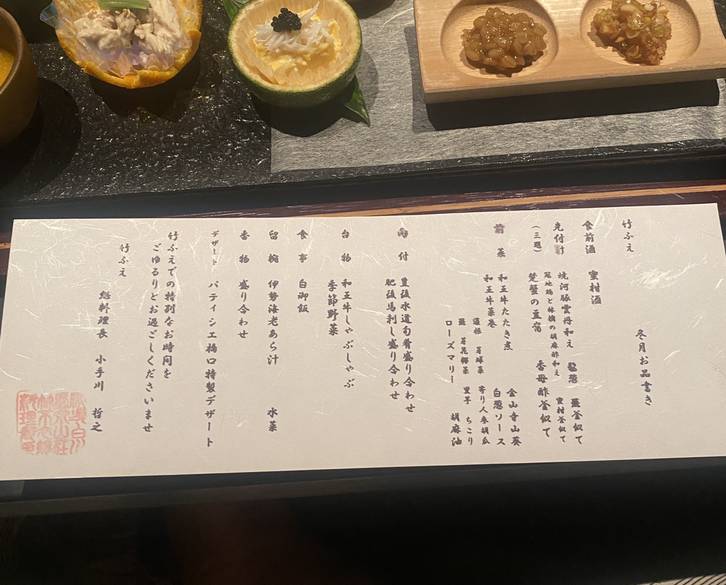 竹ふえ
冬月お品書き
食前酒 蜜柑酒
先付け 焼河豚雲丹和え 釜仕立て
(三題) 冠地鶏と林檎の胡麻酢和え 蜜柑釜仕立て
楚蟹の豆富 香母酢釜仕立て
前菜 和王牛たたき煮 金山寺山葵
和王牛菜巻 白葱ソース
蓮根 芽球菜 寄り人参胡瓜
芽花椰菜 里芋 ちこり
ローズマリー 胡麻油
向付 豊後水道旬肴盛り合わせ
肥後馬刺し盛り合わせ
台物 和王牛しゃぶしゃぶ
季節野菜
食事 白御飯
留椀 伊勢海老あら汁 水菜
香物 盛り合わせ
デザート パティシエ橋口特製デザート
竹ふえでの特別なお時間を
ごゆるりとお過ごしくださいませ
竹ふえ
総料理長 小手川 哲之